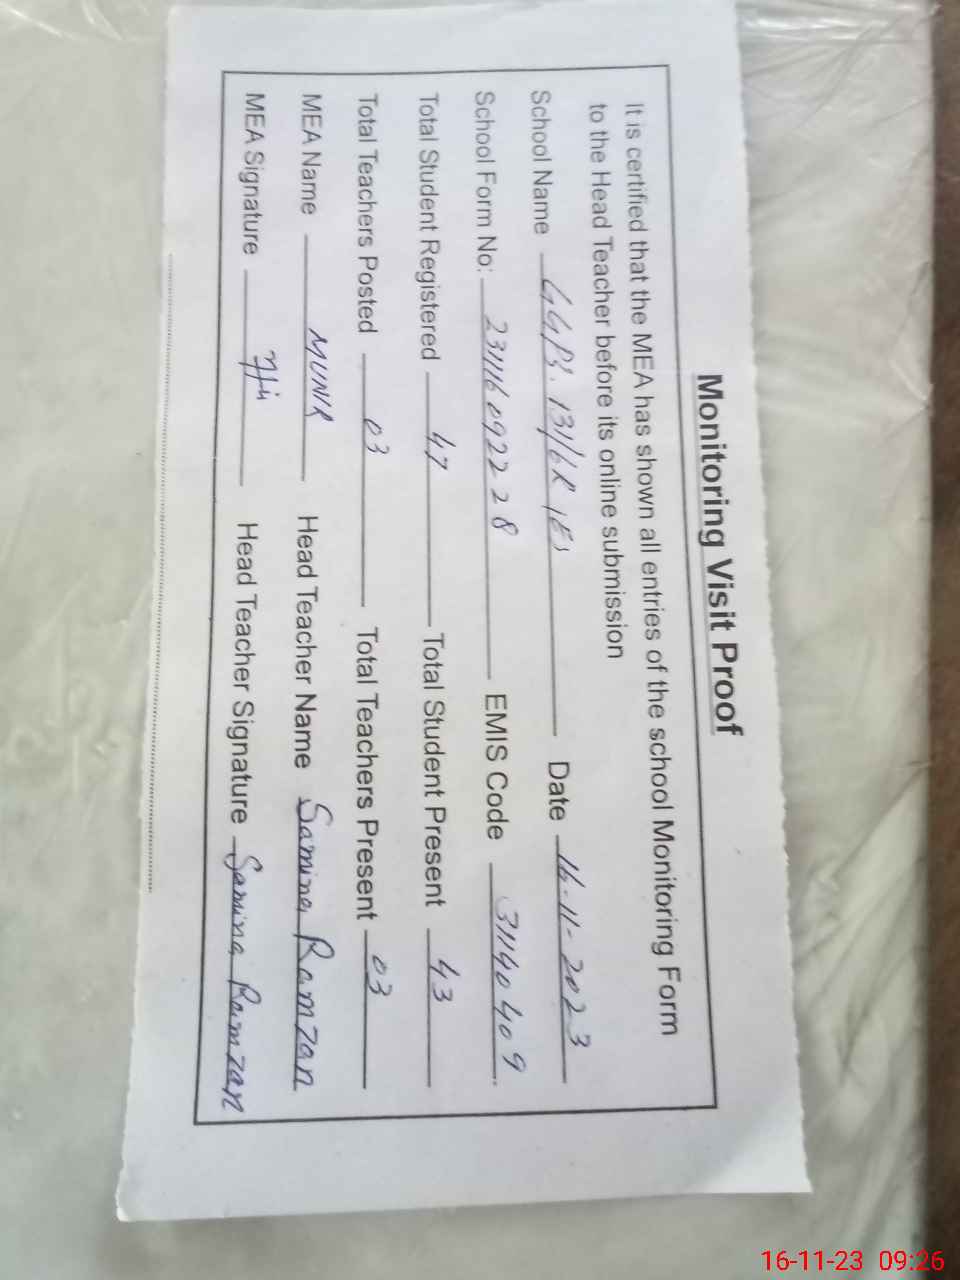 Monitoring Visit Proof
It is certified that the MEA has shown all entries of the school Monitoring Form
to the Head Teacher before its online submission
School Name GGPS. 131/6R Date 16-11-2023
School Form No: 23116092228 EMIS Code 31140409
Total Student Registered 47 Total Student Present 43
Total Teachers Posted 03 Total Teachers Present 03
MEA Name MUNIR Head Teacher Name Samina Ramzan
MEA Signature Head Teacher Signature Samina Ramzan
16-11-23 09:26